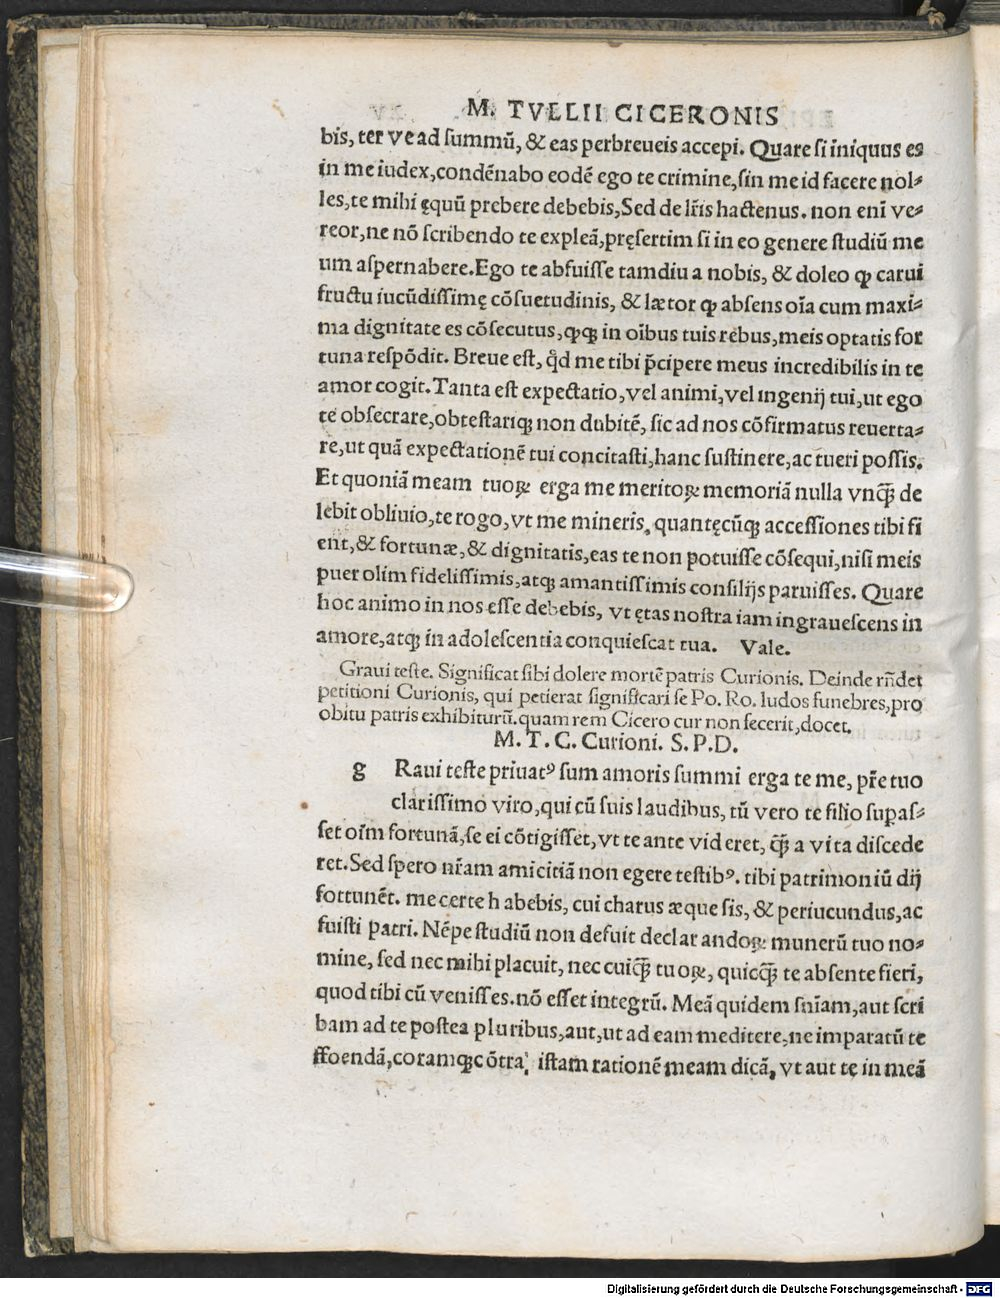 M. TVLLII CICERONIS
bis, ter ve ad ſummũ, & eas perbreueis accepi. Quare ſi iniquus es
in me iudex,condẽnabo eodẽ ego te crimine,ſin me id facere nol⸗
les,te mihi ęquũ prebere debebis,Sed de lr̃is hactenus. non enĩ ve⸗
reor,ne nõ ſcribendo te expleã,pręſertim ſi in eo genere ſtudiũ me
um aſpernabere.Ego te abfuiſſe tamdiu a nobis, & doleo ꝙ carui
fructu iucũdiſſimę cõſuetudinis, & lætor ꝙ abſens oĩa cum maxi⸗
ma dignitate es cõſecutus,ꝙꝗ in oĩbus tuis rebus,meis optatis for
tuna reſpõdit. Breue eſt, qd̉ me tibi p̃cipere meus incredibilis in te
amor cogit.Tanta eſt expectatio,vel animi,vel ingenij tui,ut ego
te obſecrare,obteſtariqꝫ non dubitẽ, ſic ad nos cõfirmatus reuerta⸗
re,ut quã expectationẽ tui concitaſti,hanc ſuſtinere,ac tueri poſſis.
Et quoniã meam tuoꝝ erga me meritoꝝ memoriã nulla vnqꝫ̃ de
lebit obliuio,te rogo,vt me mineris, quantęcũqꝫ acceſſiones tibi fi
ent,& fortunæ,& dignitatis,eas te non potuiſſe cõſequi,niſi meis
puer olim fideliſſimis,atqꝫ amantiſſimis conſilijs paruiſſes. Quare
hoc animo in nos eſſe debebis, vt ętas noſtra iam ingraueſcens in
amore,atqꝫ in adoleſcentia conquieſcat tua. Vale.
Graui teſte. Significat ſibi dolere mortẽ patris Curionis. Deinde rñdet
petitioni Curionis, qui petierat ſignificari ſe Po. Ro. ludos funebres,pro
obitu patris exhibiturũ.quam rem Cicero cur non fecerit,docet.
M. T. C. Curioni. S.P.D.
g Raui teſte priuatꝰ ſum amoris ſummi erga te me, pr̃e tuo
clariſſimo viro,qui cũ ſuis laudibus, tũ vero te filio ſupaſ⸗
ſet oĩm fortunã,ſe ei cõtigiſſet,vt te ante videret, qꝫ̃ a vita diſcede
ret.Sed ſpero nr̃am amicitiã non egere teſtibꝰ. tibi patrimoniũ dij
fortunẽt. me certe habebis, cui charus æque ſis, & periucundus,ac
fuiſti patri. Nẽpe ſtudiũ non defuit declarandoꝝ munerũ tuo no⸗
mine, ſed nec mihi placuit, nec cuiqꝫ̃ tuoꝝ, quicqꝫ̃ te abſente fieri,
quod tibi cũ veniſſes.nõ eſſet integrũ. Meã quidem ſñiam,aut ſcri
bam ad te poſtea pluribus,aut,ut ad eam meditere,ne imparatũ te
ffoendã,coramqꝫcõtra, iſtam rationẽ meam dicã, vt aut te in meã
Digitalisierung gefördert durch die Deutsche Forschungsgemeinschaft - DFG